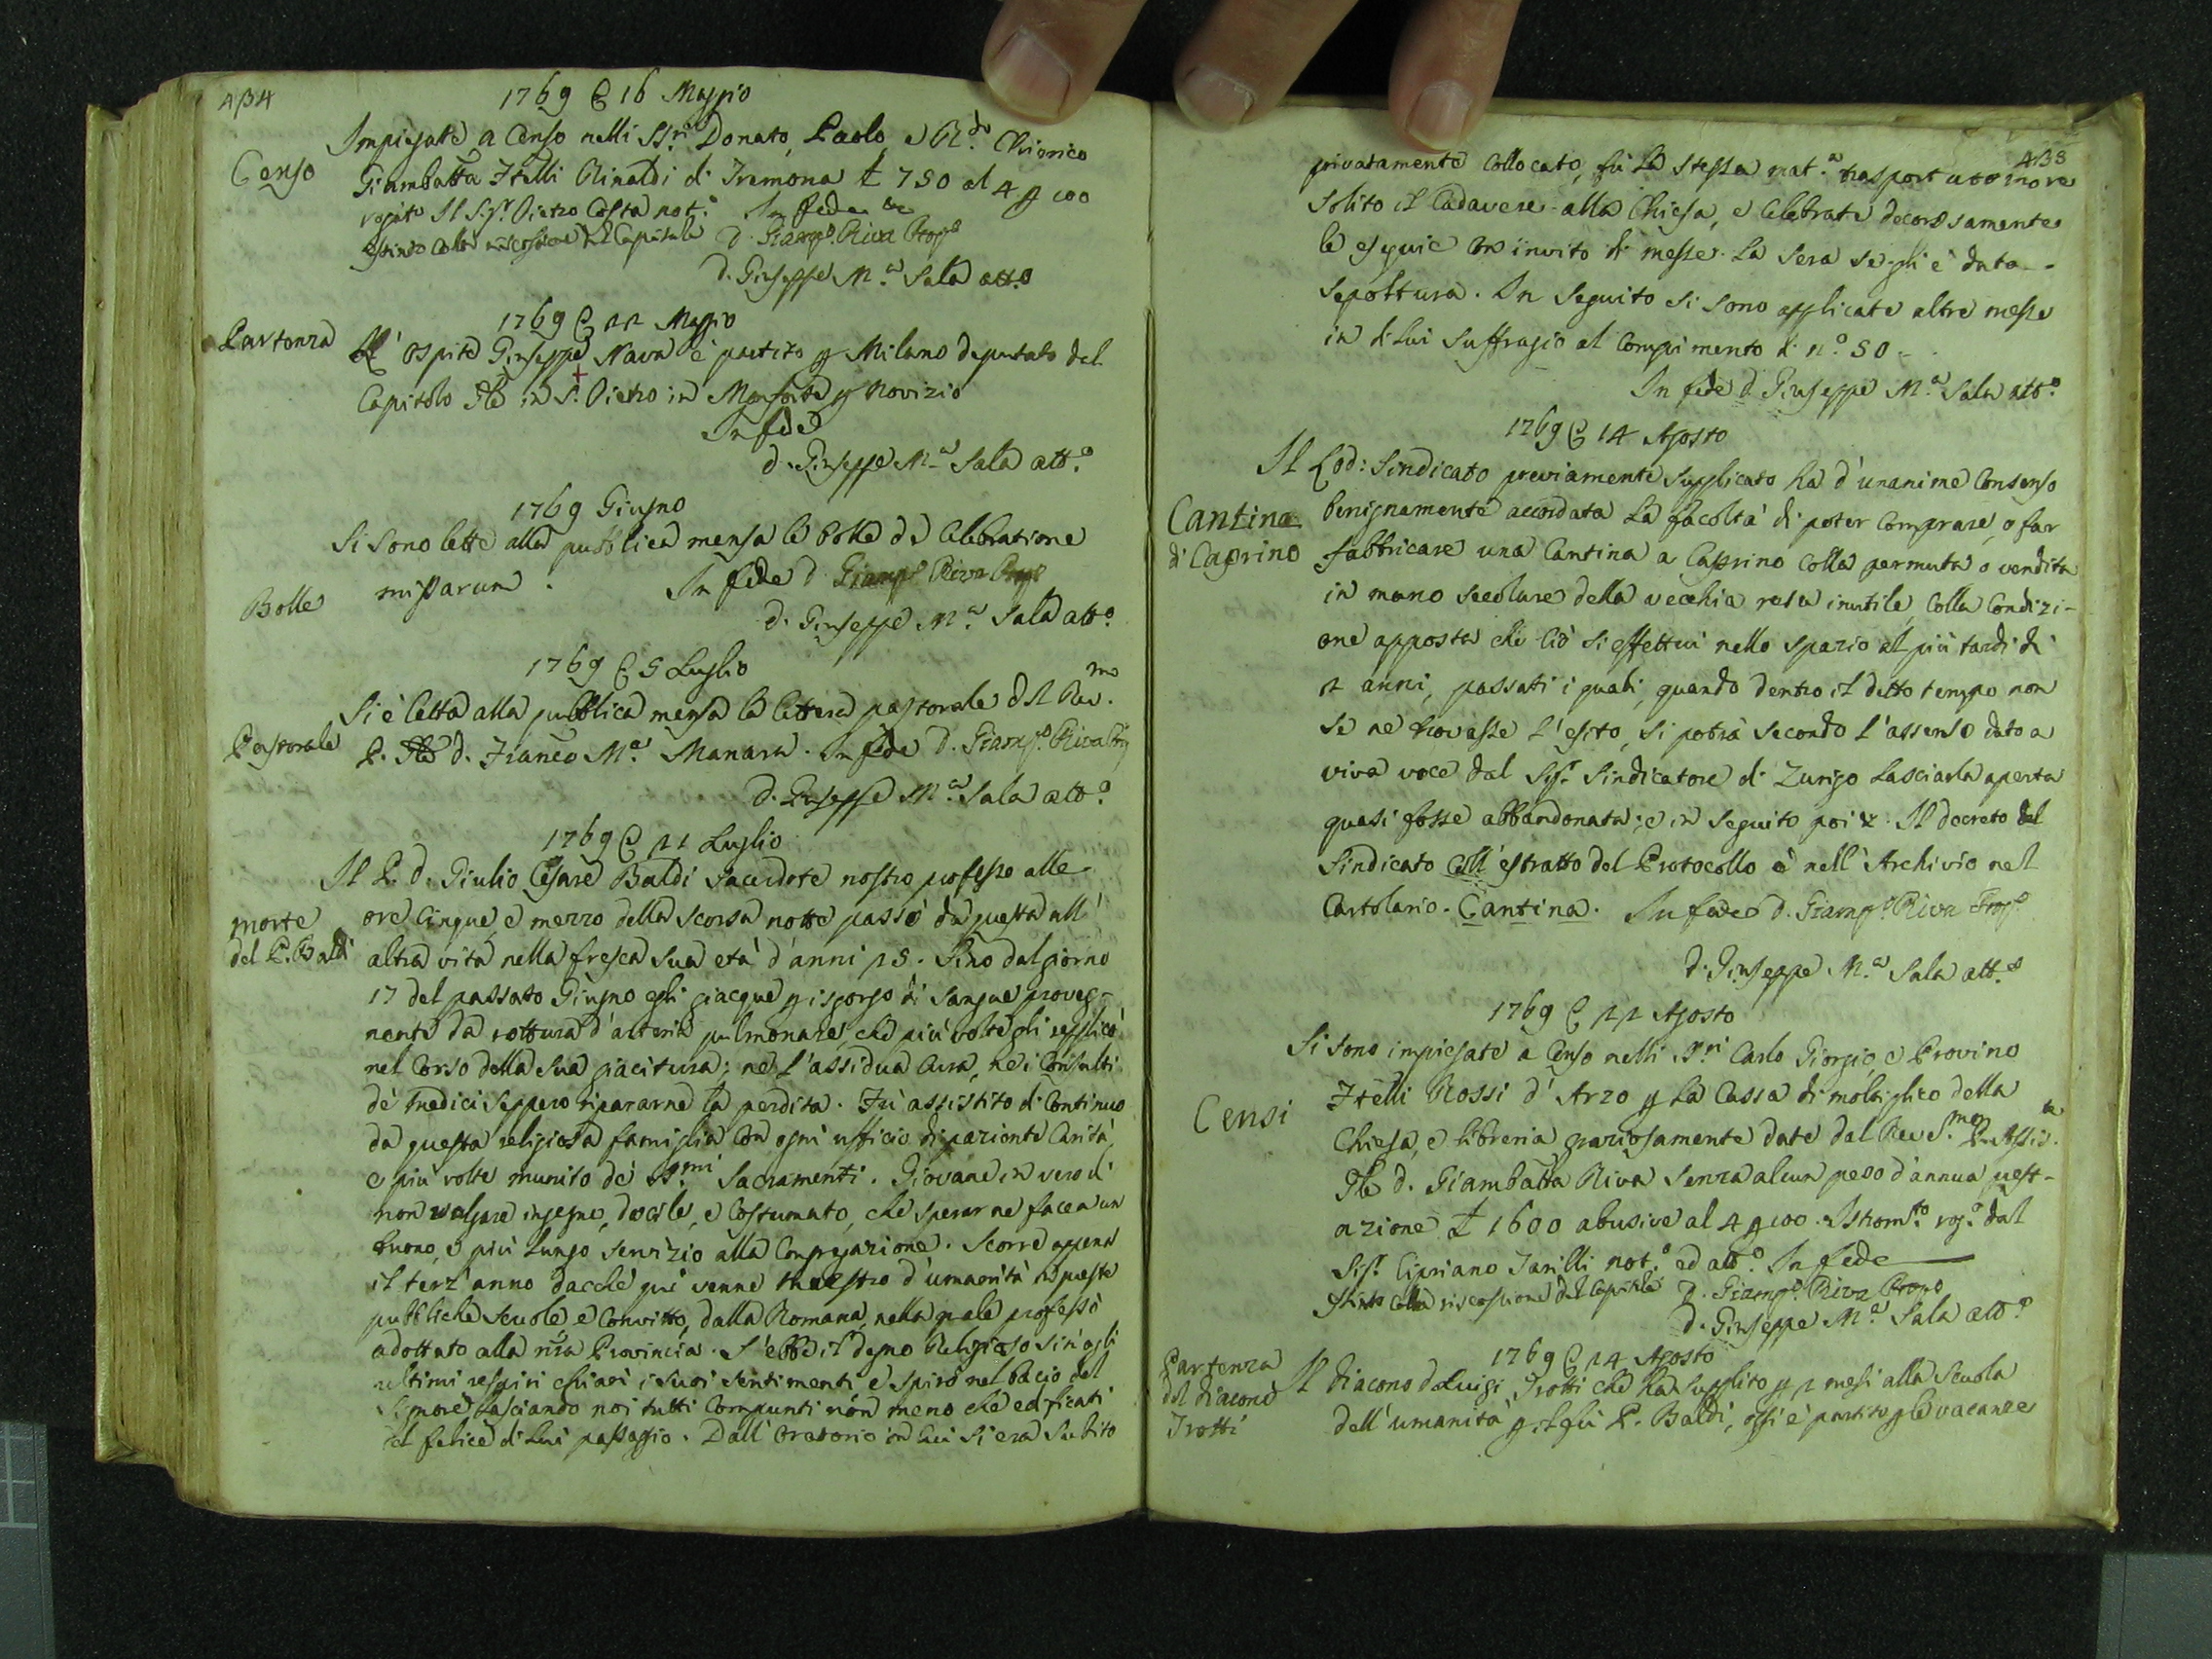 434
1769 @ 16 Maggio
Censo
Impiegate a Censo nelli SS.ri Donato, Paolo, e R.do Chierico
Giambatta Ftelli Rinaldi di Tremona £ 750 al 4 p 100
rogito Il Sig.r Pietro Costa not.o In fede
estinto colla riscossione del Capitale d. Giamp.o Riva Prop.o
d. Giuseppe M.a Sala att.o
1769 @ 22 Maggio
Partenza
L'ospite Giuseppe Nava è partito p Milano deputato dal
Capitolo Gle in S. Pietro in Monforte p Novizio
In fede
d. Giuseppe M.a Sala att.o
1769 Giugno
Si sono lette alla pubblica mensa le bolle de Celebratione
Bolle
missarum. In fede d. Giamp.o Riva Prop.o
d. Giuseppe M.a Sala att.o
1769 @ 5 Luglio
Si è letta alla pubblica mensa la lettera pastorale del Rev.mo
Pastorale
P. Gle d. Franco M.a Manara. In fede d. Giamp.o Riva Prop
d. Giuseppe M.a Sala att.o
1769 @ 21 Luglio
Il P. d. Giulio Cesare Baldi Sacerdote nostro professo alle
morte
del P. Baldi
ore cinque, e mezzo della scorsa notte passò da questa all'
altra vita nella fresca sua età d'anni 25. Sino dal giorno
17 del passato Giugno egli giacque p isgorgo di sangue prove-
nente da rottura d'arteria pulmonare, che più volte gli replicò
nel corso della sua giacitura; ne l'assidua cura, ne i Consulti
de' Medici seppero ripararne la perdita. Fù assistito di continuo
da questa religiosa famiglia con ogni ufficio di paziente Carità,
e più volte munito de' SS.mi Sacramenti. Giovane in vero di
non volgare ingegno, docile, e costumato, che sperar ne facea un
buono, e più lungo servizio alla Congregazione. Scorre appena
il terz'anno dacchè quì venne Maestro d'umanità in queste
pubbliche Scuole, e Convitto, dalla Romana, nella quale professò
adottato alla nra Provincia. S'ebbe il degno Religioso sin'agli
ultimi respiri chiari i suoi sentimenti, e spirò nel bacio del
Signore lasciando noi tutti compunti non meno che edificati
del felice di lui passaggio. Dall'Oratorio in cui si era subito
435
privatamente collocato, fù la stessa mat.a trasportato more
solito il Cadavere alla Chiesa, e celebrate decorosamente
le esequie con invito di messe. La sera se gli è data
sepoltura. In seguito si sono applicate altre messe
in di lui suffragio al compimento di n.o 50.
In fede d. Giuseppe M.a Sala att.o
1769 @ 14 Agosto
Il Lod: Sindicato previamente supplicato ha d'unanime consenso
Cantina
di Caprino
benignamente accordata la facoltà di poter comprare, o far
fabbricare una Cantina a Caprino colla permuta o vendita
in mano secolare della vecchia resa inutile, colla condizi-
one apposta che ciò si effettui nello spazio al più tardi di
2 anni, passati i quali, quando dentro il detto tempo non
se ne trovasse l'esito, si potrà secondo l'assenso dato a
viva voce dal Sig.r Sindicatore di Zurigo lasciarla aperta
quasi fosse abbandonata; e in seguito poi &. Il decreto del
Sindicato coll'estratto del Protocollo è nell'Archivio nel
Cartolario. Cantina. In fede d. Giamp.o Riva Prop.o
d. Giuseppe M.a Sala att.o
1769 @ 22 Agosto
Si sono impiegate a Censo nelli S.ri Carlo Giorgio, e Provino
Censi
Ftelli Rossi d'Arzo p la Cassa di moltiplico della
Chiesa, e libreria graziosamente date dal Rev.S.mo P. Assis.te
Gle d. Giambatta Riva senza alcun peso d'annua prest-
azione £ 1600 abusive al 4 p 100. Istrom.to rog.o dal
Sig.r Cipriano Tarilli not.o ed att.o In fede
Estinto colla riscossione del Capitale d. Giamp.o Riva Propo
d. Giuseppe M.a Sala att.o
1769 @ 24 Agosto
Partenza
del Diacono
Trotti
Il Diacono d. Luigi Trotti che ha supplito p 2 mesi alla Scuola
dell'umanità p il fù P. Baldi, oggi è partito p le vacanze